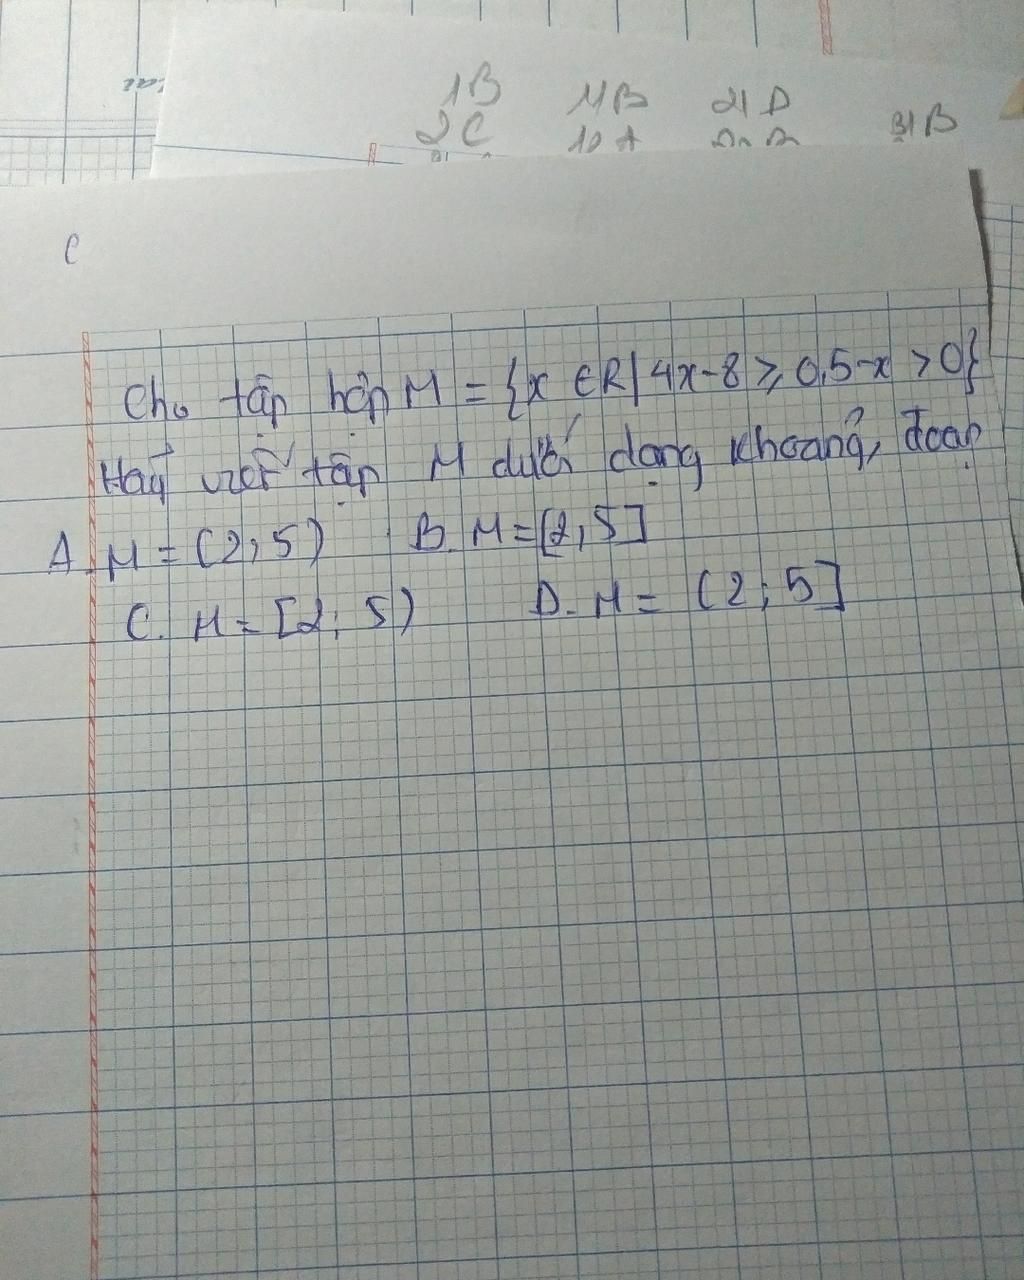 1B 11B 21 D 31 B
2C 10 A
C
Cho tập hợp M = {x ∈ R | 4x-8 ≥ 0,5-x > 0}
Hãy viết tập M dưới dạng khoảng, đoạn
A. M = (2,5) B. M = [2,5]
C. M = [2; 5) D. M = (2; 5]